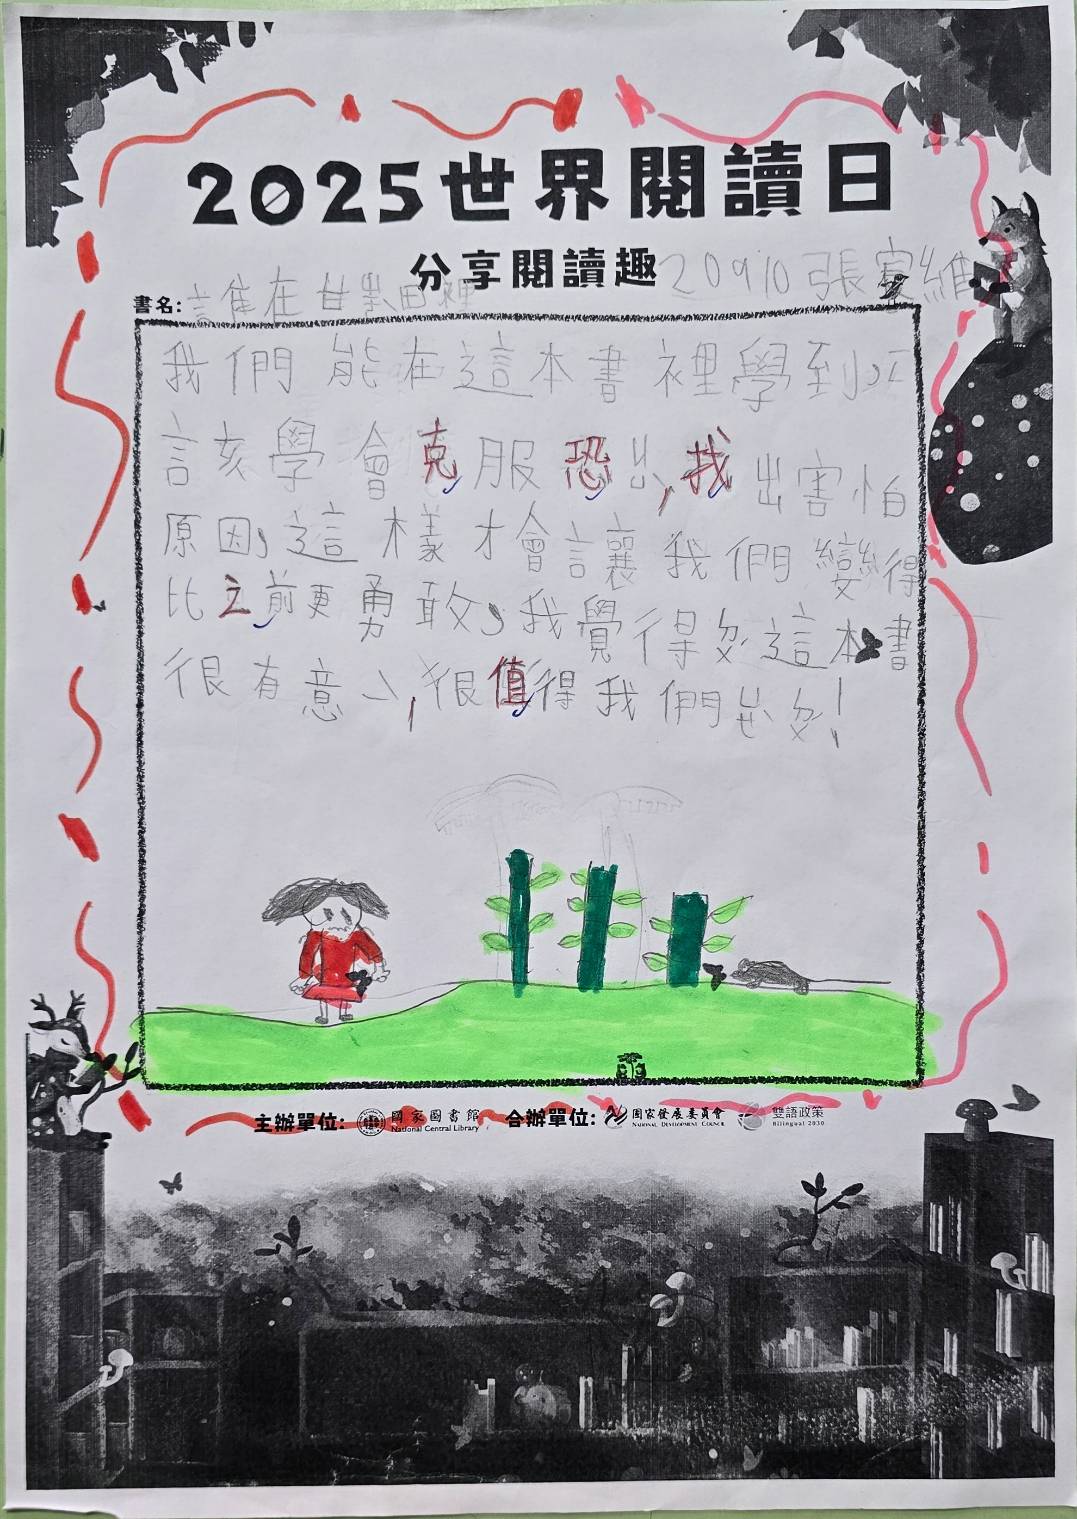 2025世界閱讀日
分享閱讀趣 20910張睿維
書名:誰在甘蔗田裡
我們能在這本書裡學到
該學會克服恐,找出害怕
原因,這樣才會讓我們變得
比之前更勇敢,我覺得這本書
很有意,很值得我們
主辦單位: 國家圖書館 National Central Library 合辦單位: 國家發展委員會 NATIONAL DEVELOPMENT COUNCIL 雙語政策 Bilingual 2030